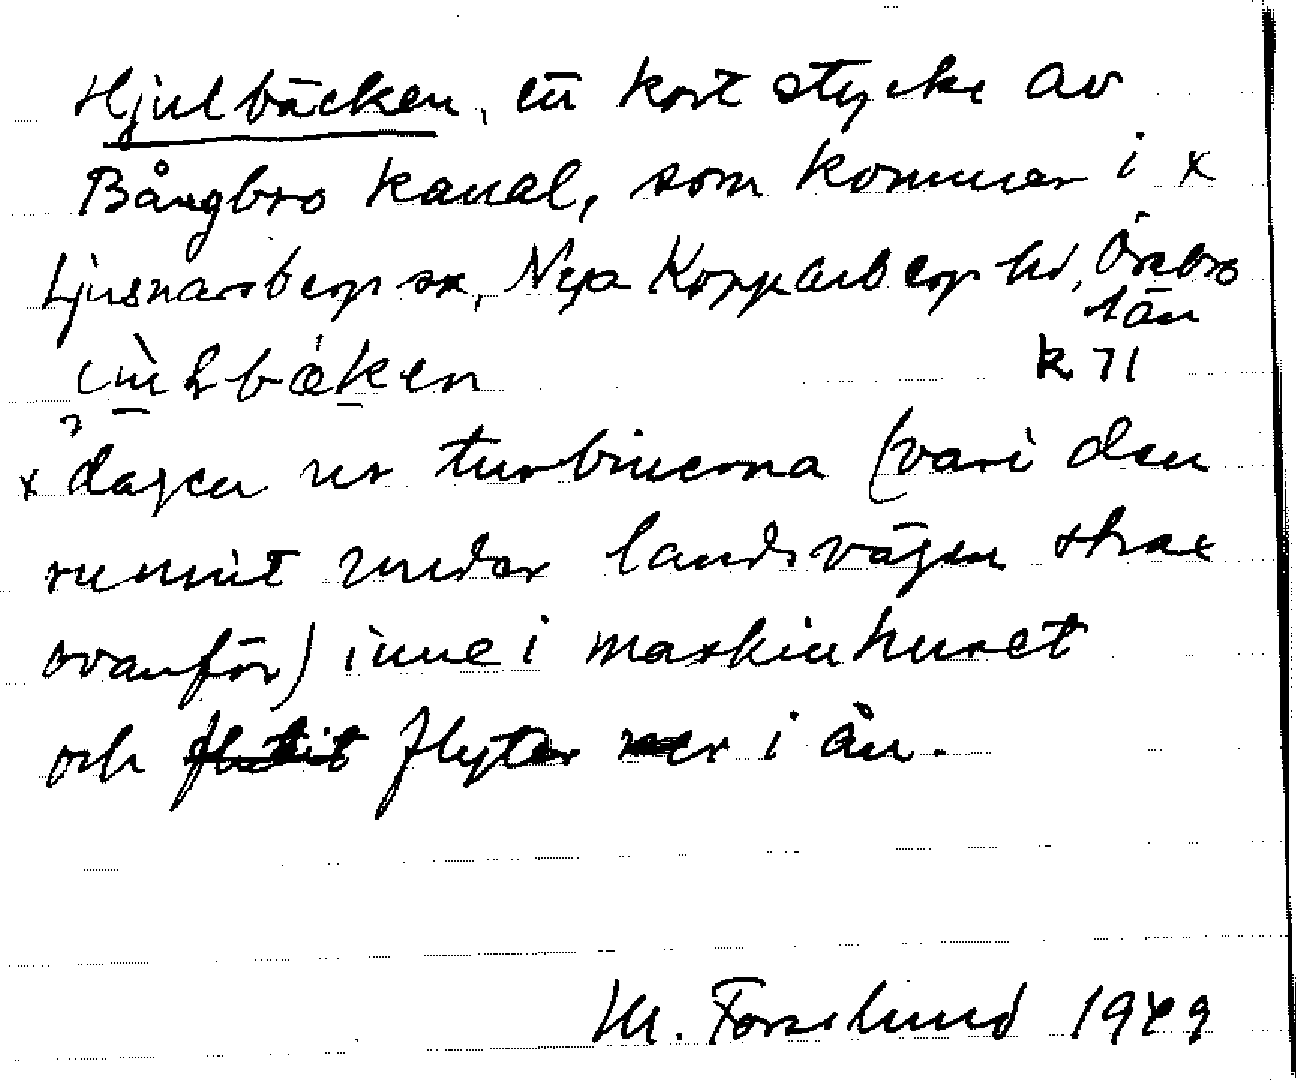 Hjulbäcken, ett kort stycke av
Bångbro kanal, som kommer i x
Ljusnarsbergs sn, Nya Kopparbergs hd, Örebro
län
k 71
x dagen ur turbinerna (vari den
runnit under landsvägen strax
ovanför) inne i maskinhuset
och flutit flyter ner i ån.
M. Forslund 1949